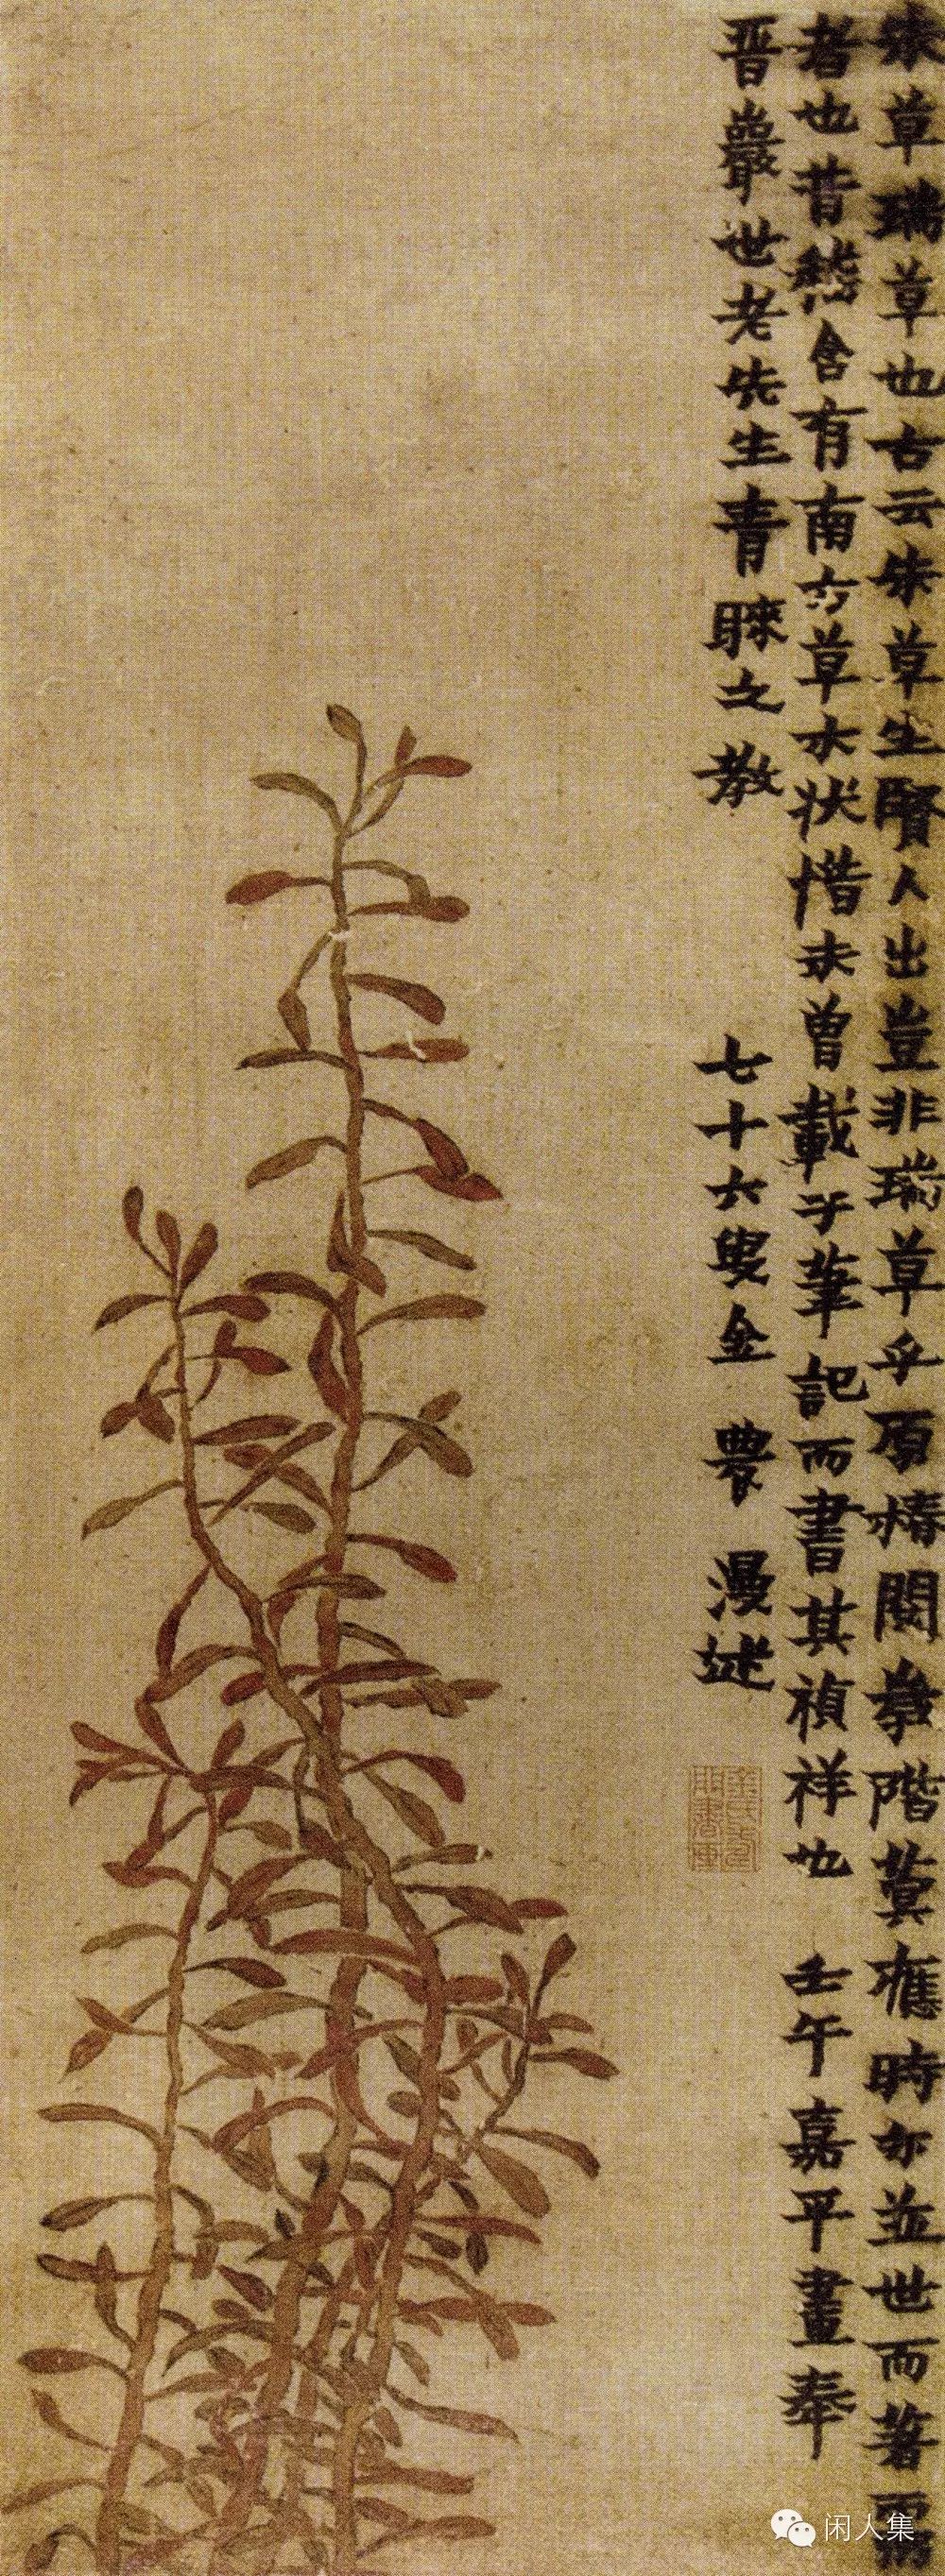 朱草瑞草也古云朱草生賢人出豈非瑞草乎原楿閔摹階蓂應時亦並世而著
者也昔嵇含有南方草木狀惜未曾載于筆記而書其禎祥也 壬午嘉平畫奉
晋巖世老先生青睞之教 七十六叟金農漫述
闲人集